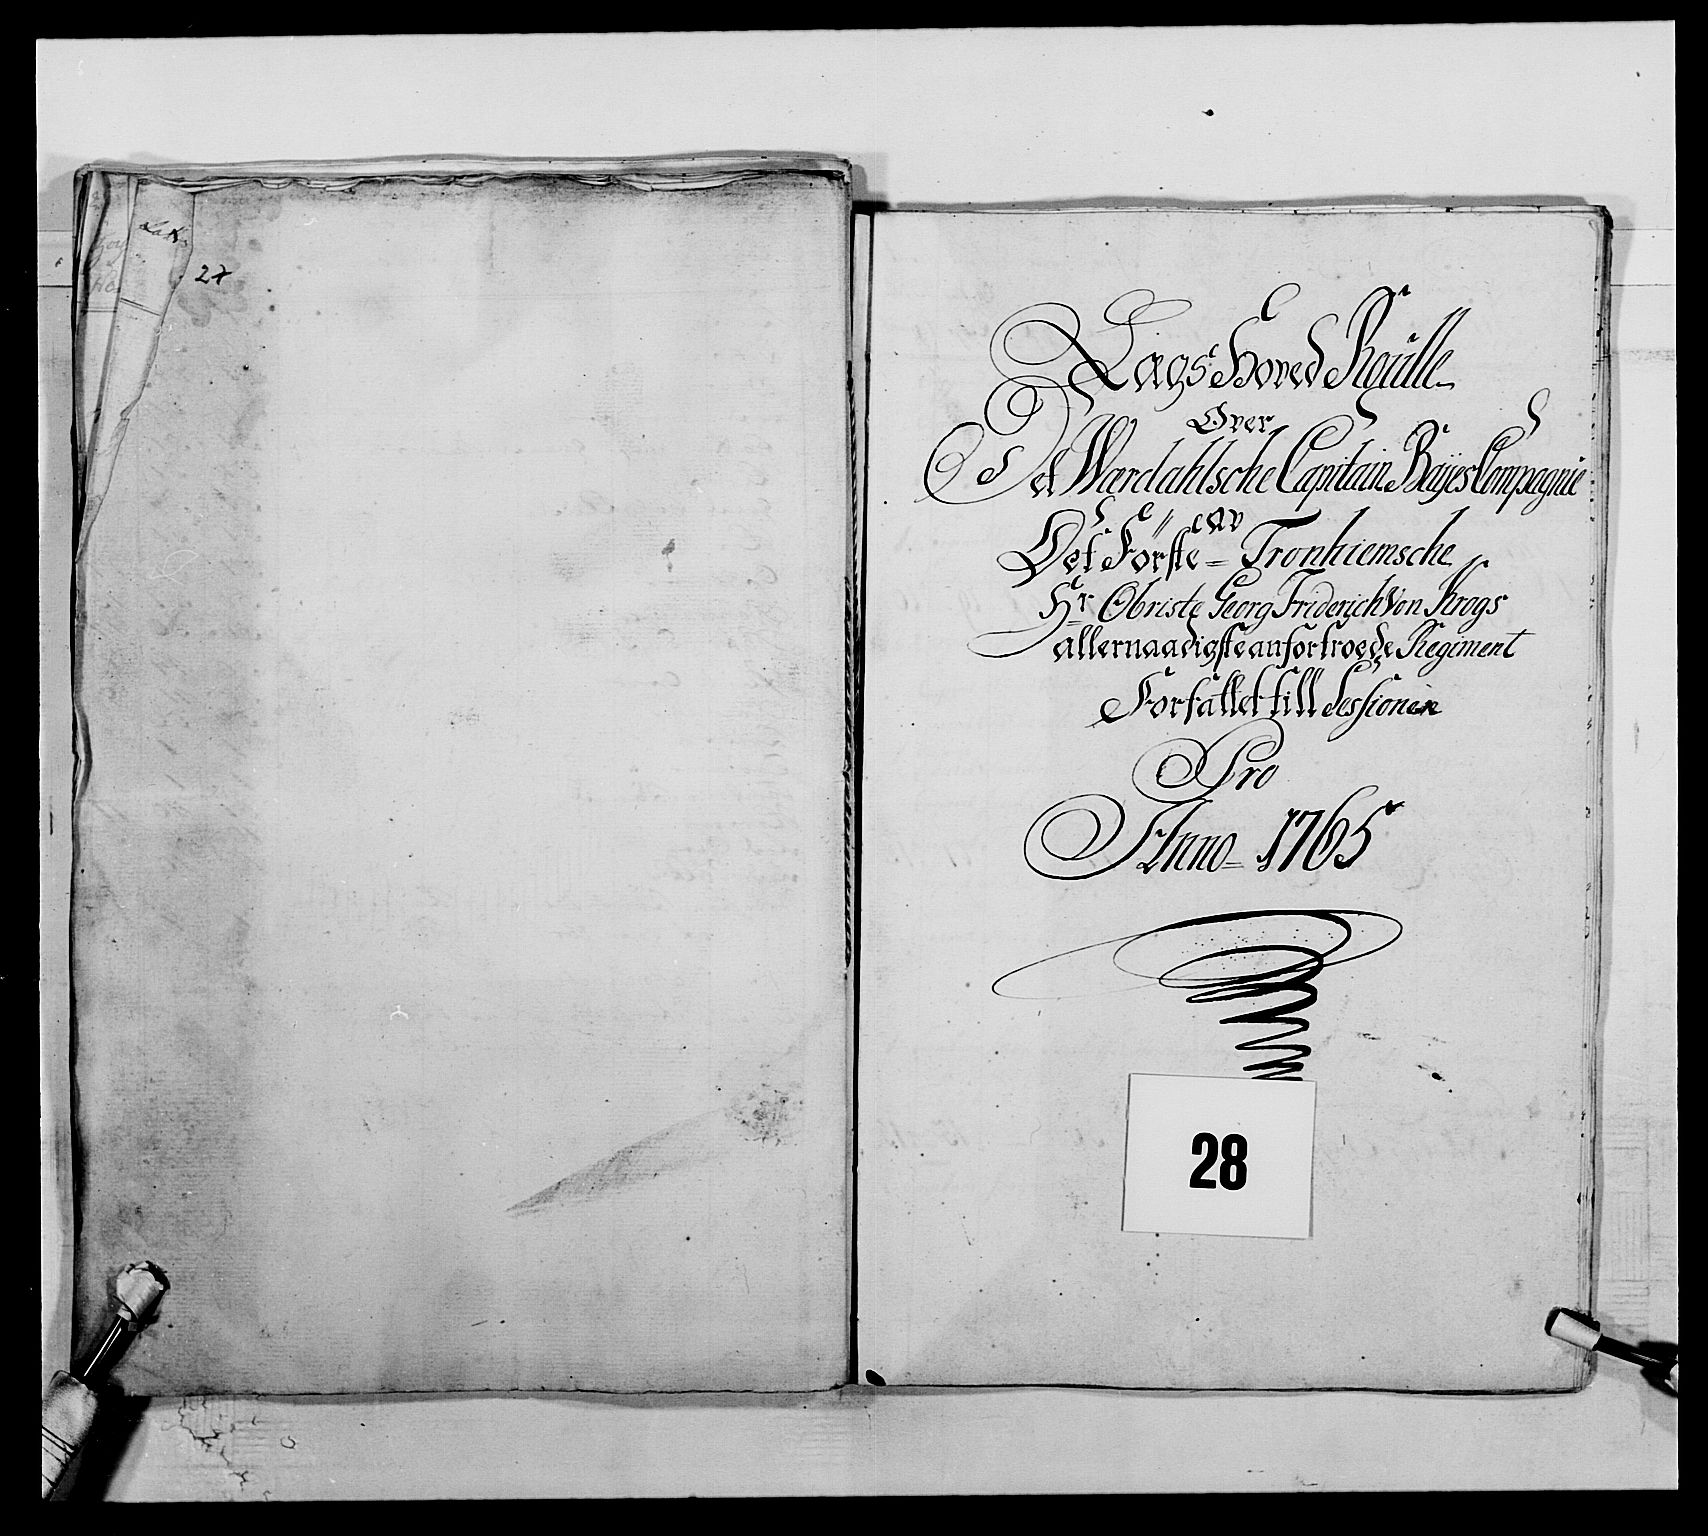 27
Lægs Hoved Rulle
Over
Det Wærdahlsche Capitain Bayes Compagnie
av
Det Förste = Tronhiemsche
Hr Obriste Georg Friderich Von Krogs
allernaadigste anfortroede Regiment
Forfattet till Sessionen
Pro
Anno = 1765
28